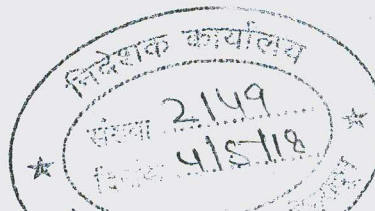 निदेशक कार्यालय
संख्या 2149
दिनांक 4/5/18